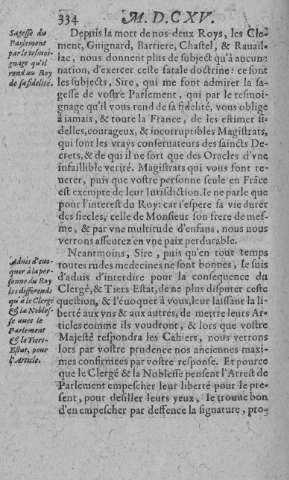 334 M. D. C XV.
Sagesse du
Parlement
par le tesmoi-
gnage qu'il
rend au Roy
de sa fidelité.
Depuis la mort de nos deux Roys, les Cle-
ment, Guignard, Barriere, Chastel, & Rauail-
lac, nous donnent plus de subject qu'à aucune
nation, d'exercer ceste fatale doctrine: ce sont
les subjects, Sire, qui me font admirer la sa-
gesse de vostre Parlement, qui par le tesmoi-
gnage qu'il vous rend de sa fidelité, vous oblige
à jamais, & toute la France, de les estimer fi-
delles, courageux, & incorruptibles Magistrats,
qui sont les vrays conseruateurs des saincts De-
crets, & de qui il ne sort que des Oracles d'vne
infaillible verité. Magistrats qui vous font re-
uerer, puis que vostre personne seule en Frãce
est exempte de leur Iurisdiction. Ie ne parle que
pour l'interest du Roy: car i'espere sa vie durer
des siecles, celle de Monsieur son frere de mes-
me, & par vne multitude d'enfans, nous nous
verrons asseurez en vne paix perdurable.
Aduis d'euo-
quer à la per-
sonne du Roy
les differends
qu'a le Clergé
& la Nobles-
se auec le
Parlement
& le Tiers-
Estat, pour
l'Article.
Neantmoins, Sire, puis qu'en tout temps
toutes rudes medecines ne sont bonnes, ie suis
d'aduis d'interdire pour la consequence du
Clergé, & Tiers Estat, de ne plus disputer ceste
question, & l'euoquer à vous, leur laissant la li-
berté aux vns & aux autres, de mettre leurs Ar-
ticles comme ils voudront, & lors que vostre
Majesté respondra les Cahiers, nous verrons
lors par vostre prudence nos anciennes maxi-
mes confirmees par vostre response. Et pource
que le Clergé & la Noblesse pensent l'Arrest de
Parlement empescher leur liberté pour le pre-
sent, pour desiller leurs yeux, ie trouue bon
d'en empescher par deffence la signature, pro-